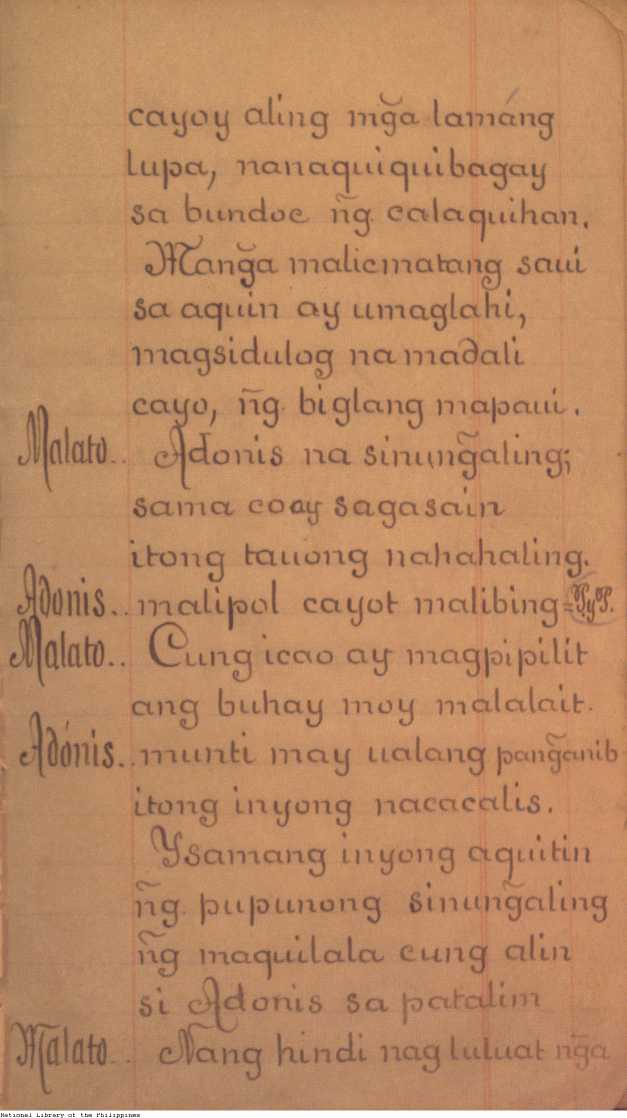 cayoy aling mg̃a lamáng
lupa, nanaquiquibagay
sa bundoc ñg calaquihan.
Mang̃a malicmatang saui
sa aquin ay umaglahi,
magsidulog na madali
cayo, ñg biglang mapaui.
Malato.. Adonis na sinung̃aling;
sama coay sagasain
itong tauong nahahaling.
Adonis.. malipol cayot malibing=P.yP.
Malato.. Cung icao ay magpipilit
ang buhay moy malalait.
Adónis.. munti may ualang pang̃anib
itong inyong nacacalis.
Ysamang inyong aquitin
ñg pupunong sinung̃aling
ñg maquilala cung alin
si Adonis sa patalim
Malato.. Nang hindi nagluluat ng̃a
National Library of the Philippines